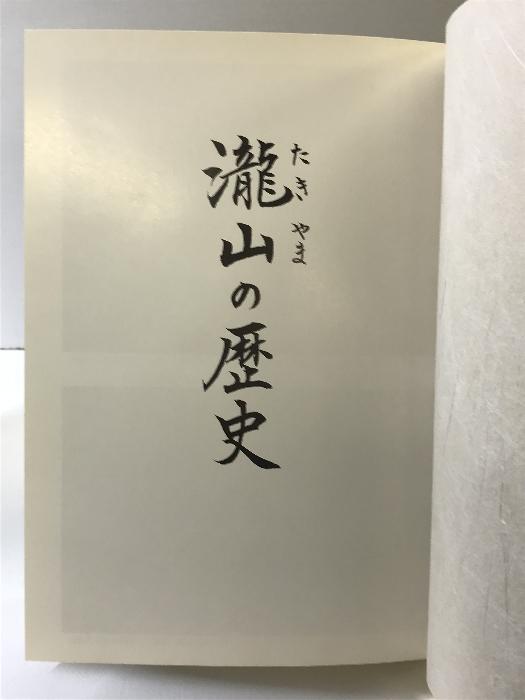 たきやま
瀧山の歴史